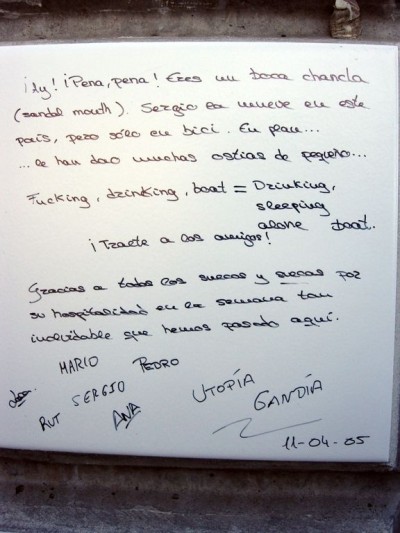 ¡Ay! ¡Pena, pena! Eres un boca chancla
(sandal mouth). Sergio se mueve en este
país, pero sólo en bici. En plan...
...le han dao muchas ostias de pequeño...
Fucking, drinking, boat = Drinking,
sleeping
alone boat.
¡Traete a los amigos!
Gracias a todos los suecos y suecas por
su hospitalidad en la semana tan
inolvidable que hemos pasado aquí.
MARIO PEDRO
SERGIO UTOPÍA
RUT ANA GANDÍA
11-04-05